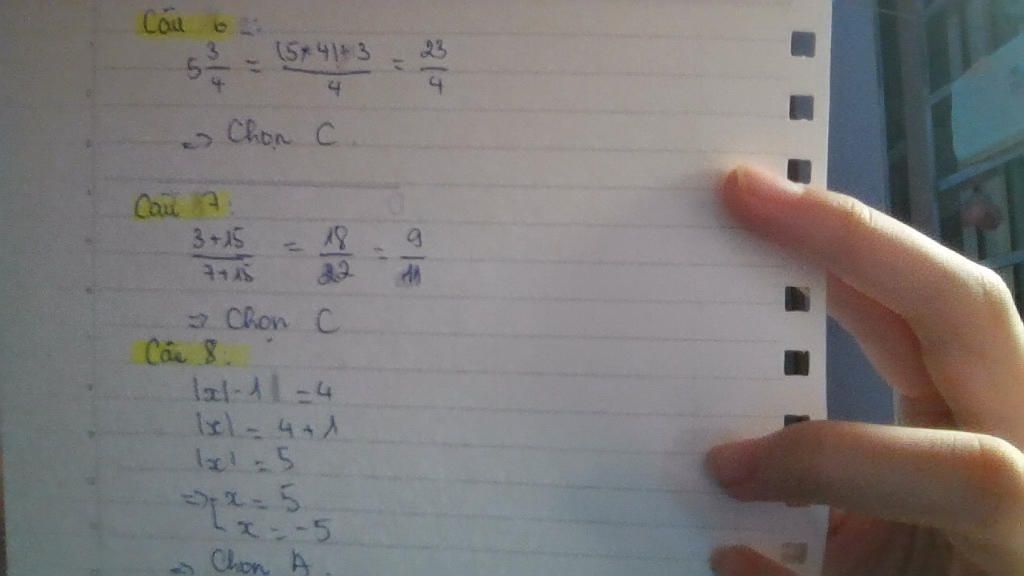 Câu 6:
5 3/4 = (5*4)+3/4 = 23/4
=> Chọn C.
Câu 7:
3+15/7+15 = 18/22 = 9/11
=> Chọn C
Câu 8:
|x|-1 = 4
|x| = 4+1
|x| = 5
=> [ x = 5
x = -5
=> Chọn A.